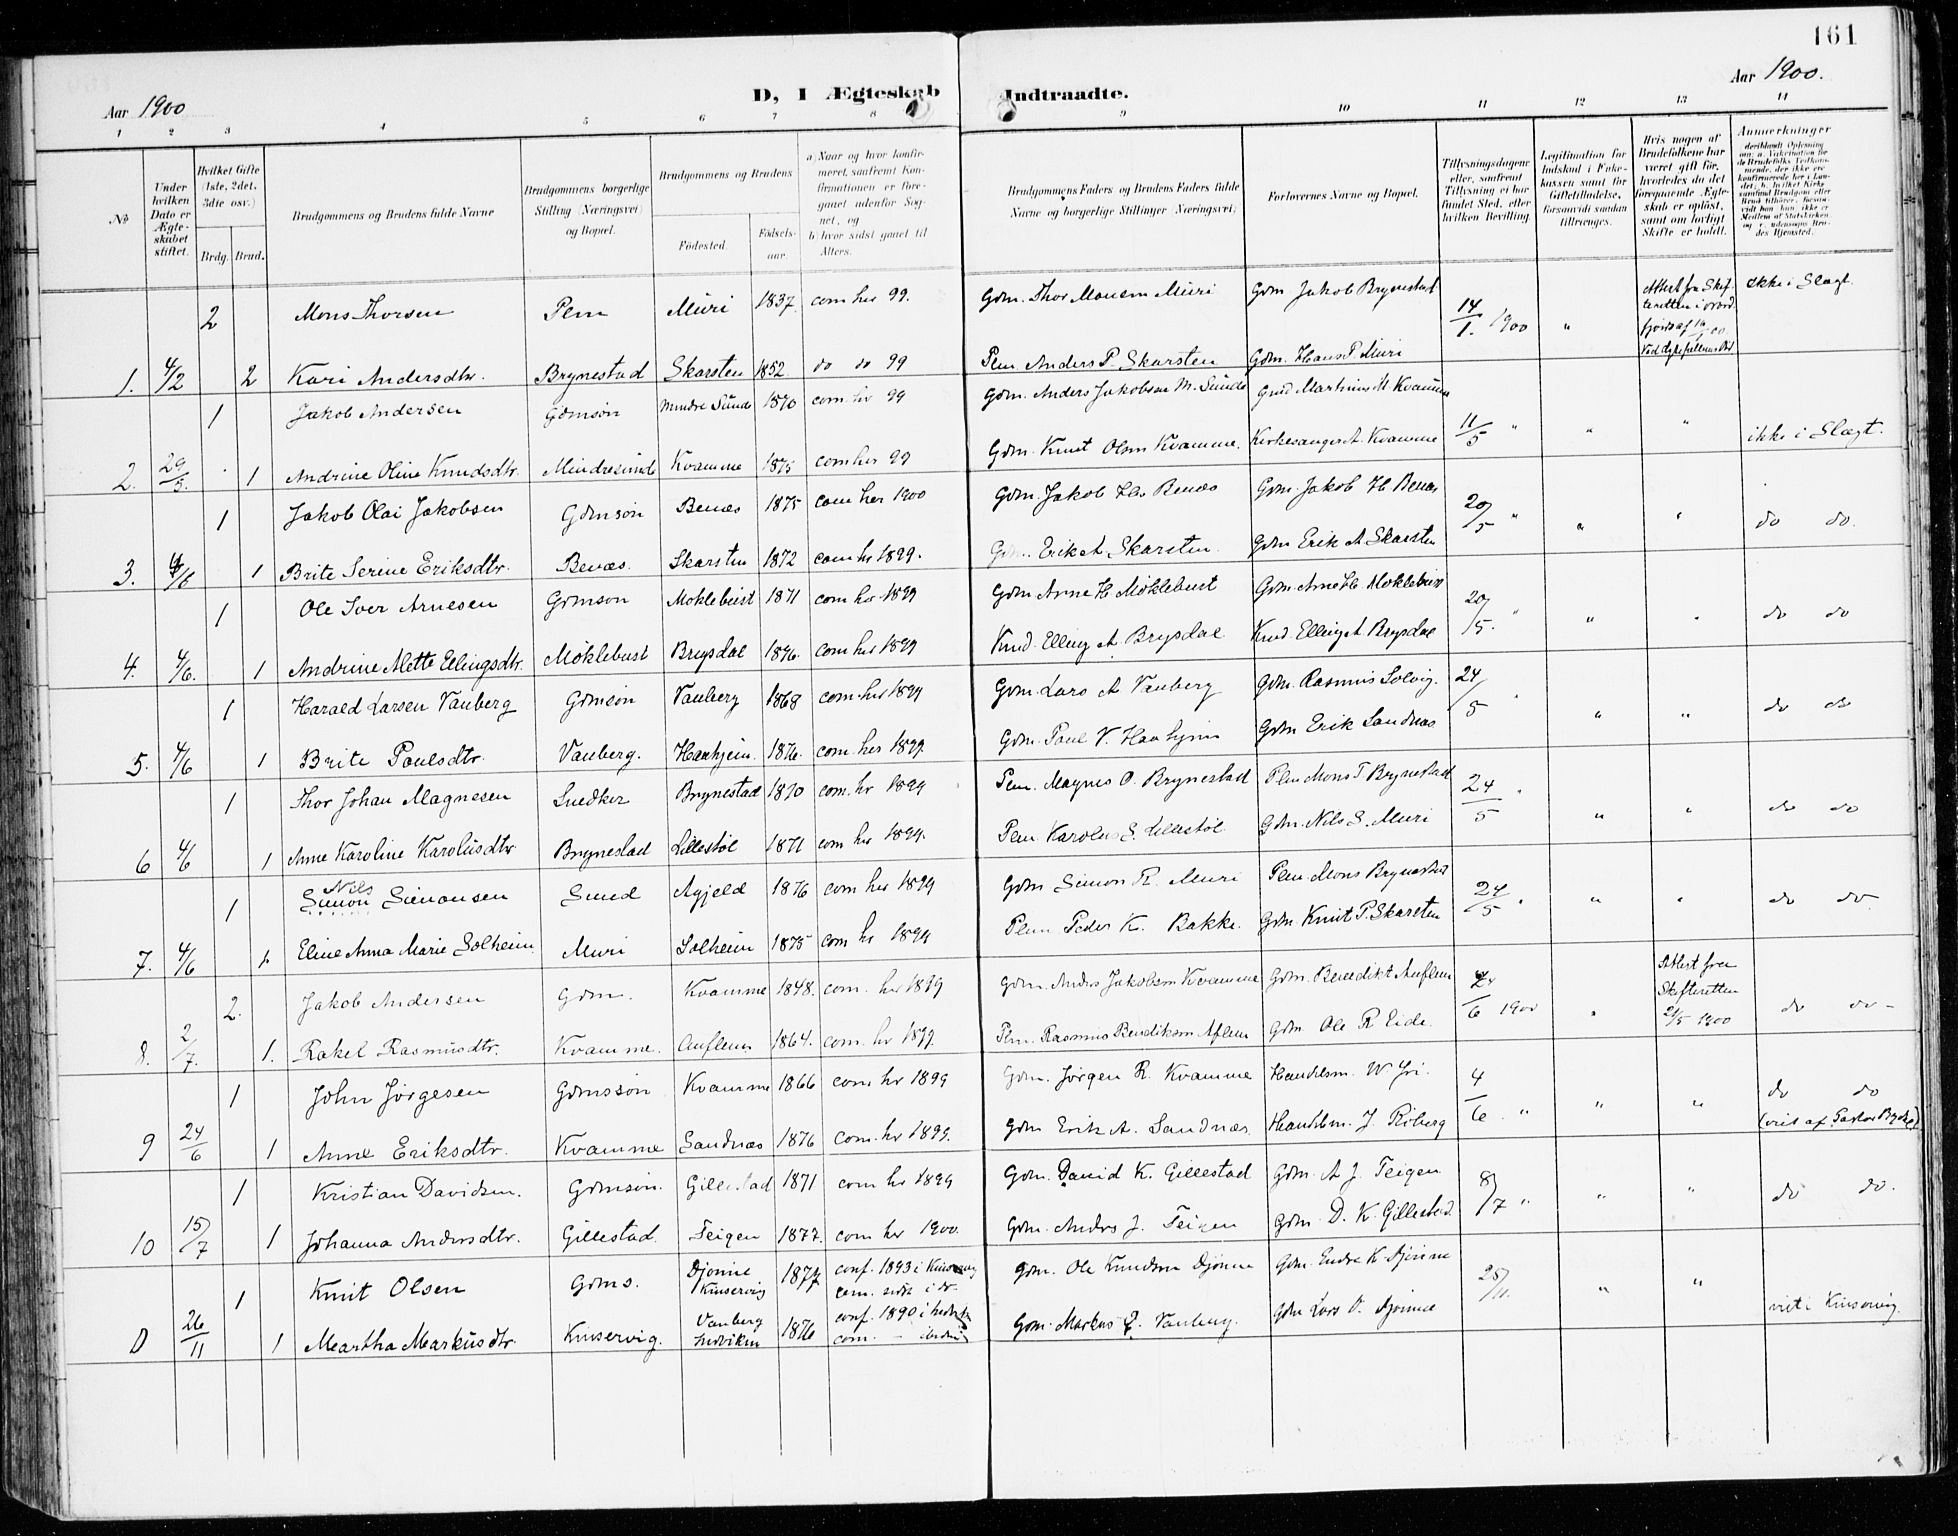 161
Aar 1900
D, I Ægteskab Indtraadte.
Aar 1900.
1 2 3 4 5 6 7 8 9 10 11 12 13 14
No
Under hvilken Dato er Ægteskabet stiftet.
Hvilket Gifte (1ste, 2det, 3dte osv.)
Brdg. Brud.
Brudgommens og Brudens fulde Navne
Brudgommens borgerlige Stilling (Næringsvei) og Bopæl.
Brudgommens og Brudens
Fødested. Fødselsaar.
a) Naar og hvor konfirmeret, saafremt Konfirmationen er foregaaet udenfor Sognet, og
b) hvor sidst gaaet til Alters.
Brudgommens Faders og Brudens Faders fulde Navne og borgerlige Stillinger (Næringsvei)
Forlovernes Navne og Bopæl.
Tillysningsdagene eller, saafremt Tillysning ei har fundet Sted, efter hvilken Bevilling.
Legitimation for Indskud i Enkekassen samt for Giftetilladelse, forsaavidt saadan tiltrænges.
Hvis nogen af Brudefolkene har været gift før, hvorledes da det foregaaende Ægteskab er opløst, samt om lovligt Skifte er holdt.
Anmerkninger
2 Mons Thorsen Plm Muri 1837. com her 99. Gdm. Thor Monsen Muri Gdm Jakob Brynestad 14/1. 1900 " Attest fra Skifteretten i Nordfjord af Ikke i Slægt.
1. 4/2 2 Kari Andersdtr. Brynestad Skarsten 1852 do do 99 Plm. Anders P. Skarsten Gdm. Hans P. Muri
1 Jakob Andersen Gdmsøn Mindre Sunde 1870 com. her 99 Gdm. Anders Jakobsen M. Sunde Gmd Martinus M Kvamme 11/5 " " "
2. 29/5. 1 Andrine Oline Knudsdtr. Mindresunde Kvamme 1875 com her 99 Gdm. Knut Olsen Kvamme. Kirkesanger A. Kvamme ikke i Slægt.
1 Jakob Olai Jakobsen Gdmsøn Benæs 1875 com her 1900 Gdm. Jakob Hs Benæs Gdm. Jakob H Benæs 20/5 " " "
3. 4/6 1 Brite Serine Eriksdtr. Benæs. Skarsten 1872 com her 1899. Gdm. Erik A. Skarsten. Gdm Erik A Skarsten do do.
1 Ole Iver Arnesen Gdmsøn Moklebust 1871 com her 1899 Gdm Arne H Møklebust Gdm. Arne H. Moklebust 20/5. " " "
4. 4/6. 1 Andrine Mette Ellingsdtr. Møklebust Brysdal 1876. com her 1899 Kmd. Elling A. Brysdal Kmd. Elling A Brysdal do do
1 Harald Larsen Vanberg Gdmsøn Vanberg 1868 com. her 1899 Gdm. Lars A Vanberg Gdm. Rasmus Solvig. 24/5 " " "
5. 4/6 1 Brite Paulsdtr. Vanberg. Haahjem. 1876. com. her 1899. Gdm. Paul V. Haahjem Gdm Erik Sandnæs do do
1 Thor Johan Magnesen Snedker Brynestad 1870 com. hr 1899 Plm. Magnes O. Brynestad Plm Mons T Brynestad 24/5 " " "
6 4/6 1 Anne Karoline Karolusdtr Brynestad Lillestøl 1871 com her 1899. Plm Karolus S Lillestøl Gdm. Nils S. Muri do do
1 Nils Simon Simonsen Smed Agjeld 1876 com her 1899 Gdm Simon R. Muri Plm Mons Brynestad 24/5 " " "
7. 4/6 1. Eline Anna Marie Solheim. Muri Solheim 1875 com hr 1899 Plm Peder K. Bakke. Gdm. Knut P. Skarsten do do
2. Jakob Andersen Gdm. Kvamme 1848. com. her 1899 Gdm. Anders Jakobsen Kvamme Gdm. Benedikt Auflem 1900 " Attest fra Skifteretten 21/5 1900
8. 2/7. 1. Rakel Rasmusdtr. Kvamme. Auflem 1864. com. hr 1899. Plm. Rasmus Bendiksen Aflem Gdm. Ole R Eide. do do
1 John Jørgesen Gdmssøn Kvamme 1866 com hr 1899 Gdm. Jørgen R. Kvamme Handelsm. W. Yri. 4/6 " " "
9 24/6 1 Anne Eriksdtr. Kvamme Sandnæs 1876 com. hr 1899. Gdm Erik A. Sandnæs. Handelsm. J. Roberg do do (viet af Pastor
1 Kristian Davidsen. Gdmsøn. Gillestad 1871 com hr 1899 Gdm. David K. Gillestad Gdm. A J. Teigen 8/7 " " "
10 15/7 1 Johanna Andersdtr. Gillestad. Teigen 1877. com her 1900. Gdm. Anders J. Teigen Gdm. D. K. Gillestad. do do.
1 Knut Olsen Gdms. Djonne Kinservig 1877 conf. 1893 i Kinservig com. sidst i do. Gdm. Ole Knudsen Djonne Gdm. Endre K. Djonne 25/11. " "
D 26/11 1 Martha Markusdtr. Kinservig. Vanberg Indviken 1876 conf. 1890 i com. Gdm. Markus Vanberg. Gdm Lars O. Djonne viet i Kinservig.